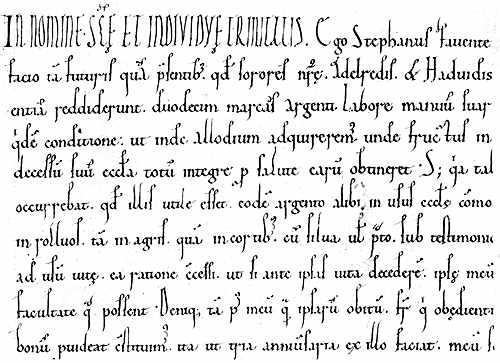 IN NOMINE SCE ET INDIVIDUE TRINITATIS. Ego Stephanus favente
facio tā futuris quā psentib; qd sorores nrē. Adelredis. & Hadvidis
entiā reddiderunt. duodecim marcas argenti labore manuū suar
qdē conditione. ut inde allodium adquirerem; unde fructus in
decessū suū eccła totū integre p salute earū obtineret. S; qa tal
occurrebat. qd illis utile esset. eodē argento alibi in usus eccłę cōmo
in rossuos. tā in agris. quā in cortib; cū silua ul pto. sub testimonio
ad usū uitę. ea ratione cessi. ut si ante ipsas uita decederē. ipsę meū
facultate possent. Deniq; tā p meū q ipsarū obitū. fr q obedienti
bonū puideat stituim; ita ut tria annuersaria ex illo faciat. meū